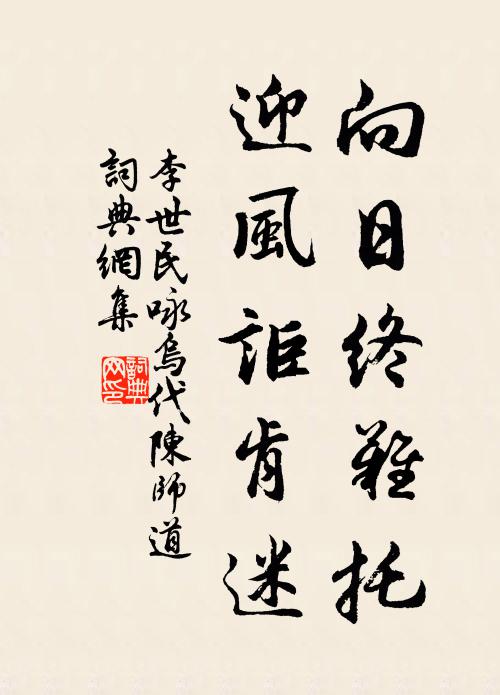 向日終難托
迎風詎肯迷
李世民咏烏代陳師道
詞典網集
詞典網印